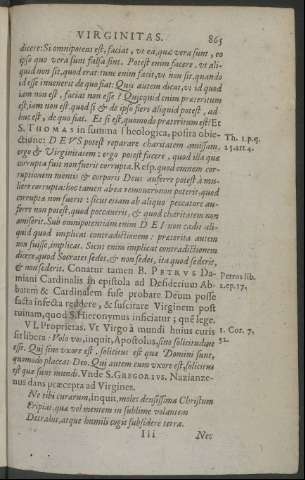 VIRGINITAS. 865
dicere: Si omnipotens est, faciat, vt ea, quæ vera sunt, eo
ipso quo vera sunt falsa sint. Potest enim facere, vt ali-
quid non sit, quod erat: tunc enim facit, vt non sit, quando
id esse inuenerit de quo fiat. Quis autem dicat, vt id quod
iam non est, faciat non esse? Quicquid enim præteritum
est, iam non est, quod si & de ipso fieri aliquid potest, ad-
huc est, de quo fiat. Et si est, quomodo præteritum est? Et
S. THOMAS in summa Theologica, posita obie-
ctione: DEVS potest reparare charitatem amissam,
ergo & Virginitatem: ergo potest facere, quod illa quæ
corrupta fuit non fuerit corrupta. Resp. quod omnem cor-
ruptionem mentis & corporis Deus auferre potest, à mu-
liere corrupta: hoc tamen ab ea remoueri non poterit, quod
corrupta non fuerit: sicut etiam ab aliquo peccatore au-
ferre non potest, quod peccauerit, & quod charitatem non
amiserit. Sub omnipotentiam enim DEI non cadit ali-
quid quod implicat contradictionem: præterita autem
non fuisse, implicat. Sicut enim implicat contradictionem
dicere, quod Socrates sedet, & non sedet, ita quod sederit,
& non sederit. Conatur tamen B. PETRVS Da-
miani Cardinalis in epistola ad Desiderium Ab-
batem & Cardinalem fuse probare Deum posse
facta infecta reddere, & suscitare Virginem post
ruinam, quod S. Hieronymus insciatur; quē lege.
VI. Proprietas. Vt Virgo à mundi huius curis
sit libera: Volo vos, inquit, Apostolus, sine solicitudine
esse. Qui sine vxore est, solicitus est quæ Domini sunt,
quomodo placeat Deo. Qui autem cum vxore est, solicitus
est quæ sunt mundi. Vnde S. GREGORIVS, Nazianze-
nus dans præcepta ad Virgines.
Ne tibi curarum, inquit, moles densissima Christum
Eripiat, qua vel mentem in sublime volantem
Detrahat, atque humili cogat subsidere terra.
Iii Nec
Th. 1. p. q.
25. art. 4.
Petrus lib.
2. ep. 17.
1. Cor. 7,
32.